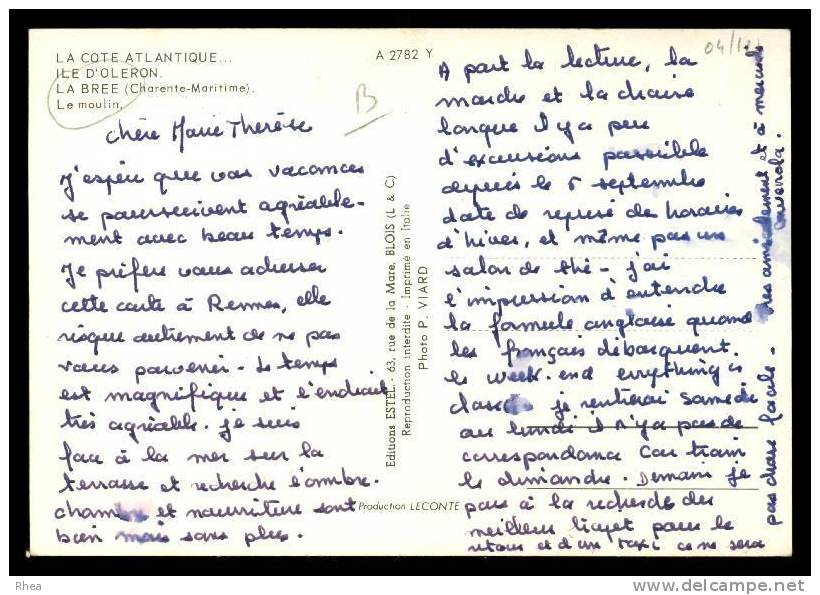 LA COTE ATLANTIQUE...
ILE D'OLERON.
LA BREE (Charente-Maritime).
Le moulin.
A 2782 Y
04/12
B
chère Marie Thérèse
J'espère que vos vacances
se poursuivent agréable-
ment avec beau temps.
Je préfère vous adresser
cette carte à Rennes, elle
risque autrement de ne pas
vous parvenir - Le temps
est magnifique et l'endroit
très agréable. je suis
face à la mer sur la
terrasse et recherche l'ombre.
chambre et nourriture sont
bien mais sans plus.
Editions ESTEL - 63, rue de la Mare, BLOIS (L & C)
Reproduction interdite - Imprimé en Italie
Photo P. VIARD
Production LECONTE
A part la lecture, la
marche et la chaise
longue il y a peu
d'excursions possible
depuis le 5 septembre
date de reprise des horaires
d'hiver, et même pas un
salon de thé - j'ai
l'impression d'entendre
la formule anglaise quand
les français débarquent.
le week-end everything is
closed je rentrerai samedi
au lundi il n'y a pas de
correspondance Car train
le dimanche. Demain je
pars à la recherche du
meilleur trajet pour le
retour et d'un taxi ce ne sera
pas chose facile - très amicalement et à mercredi
Rhea
www.delcampe.net